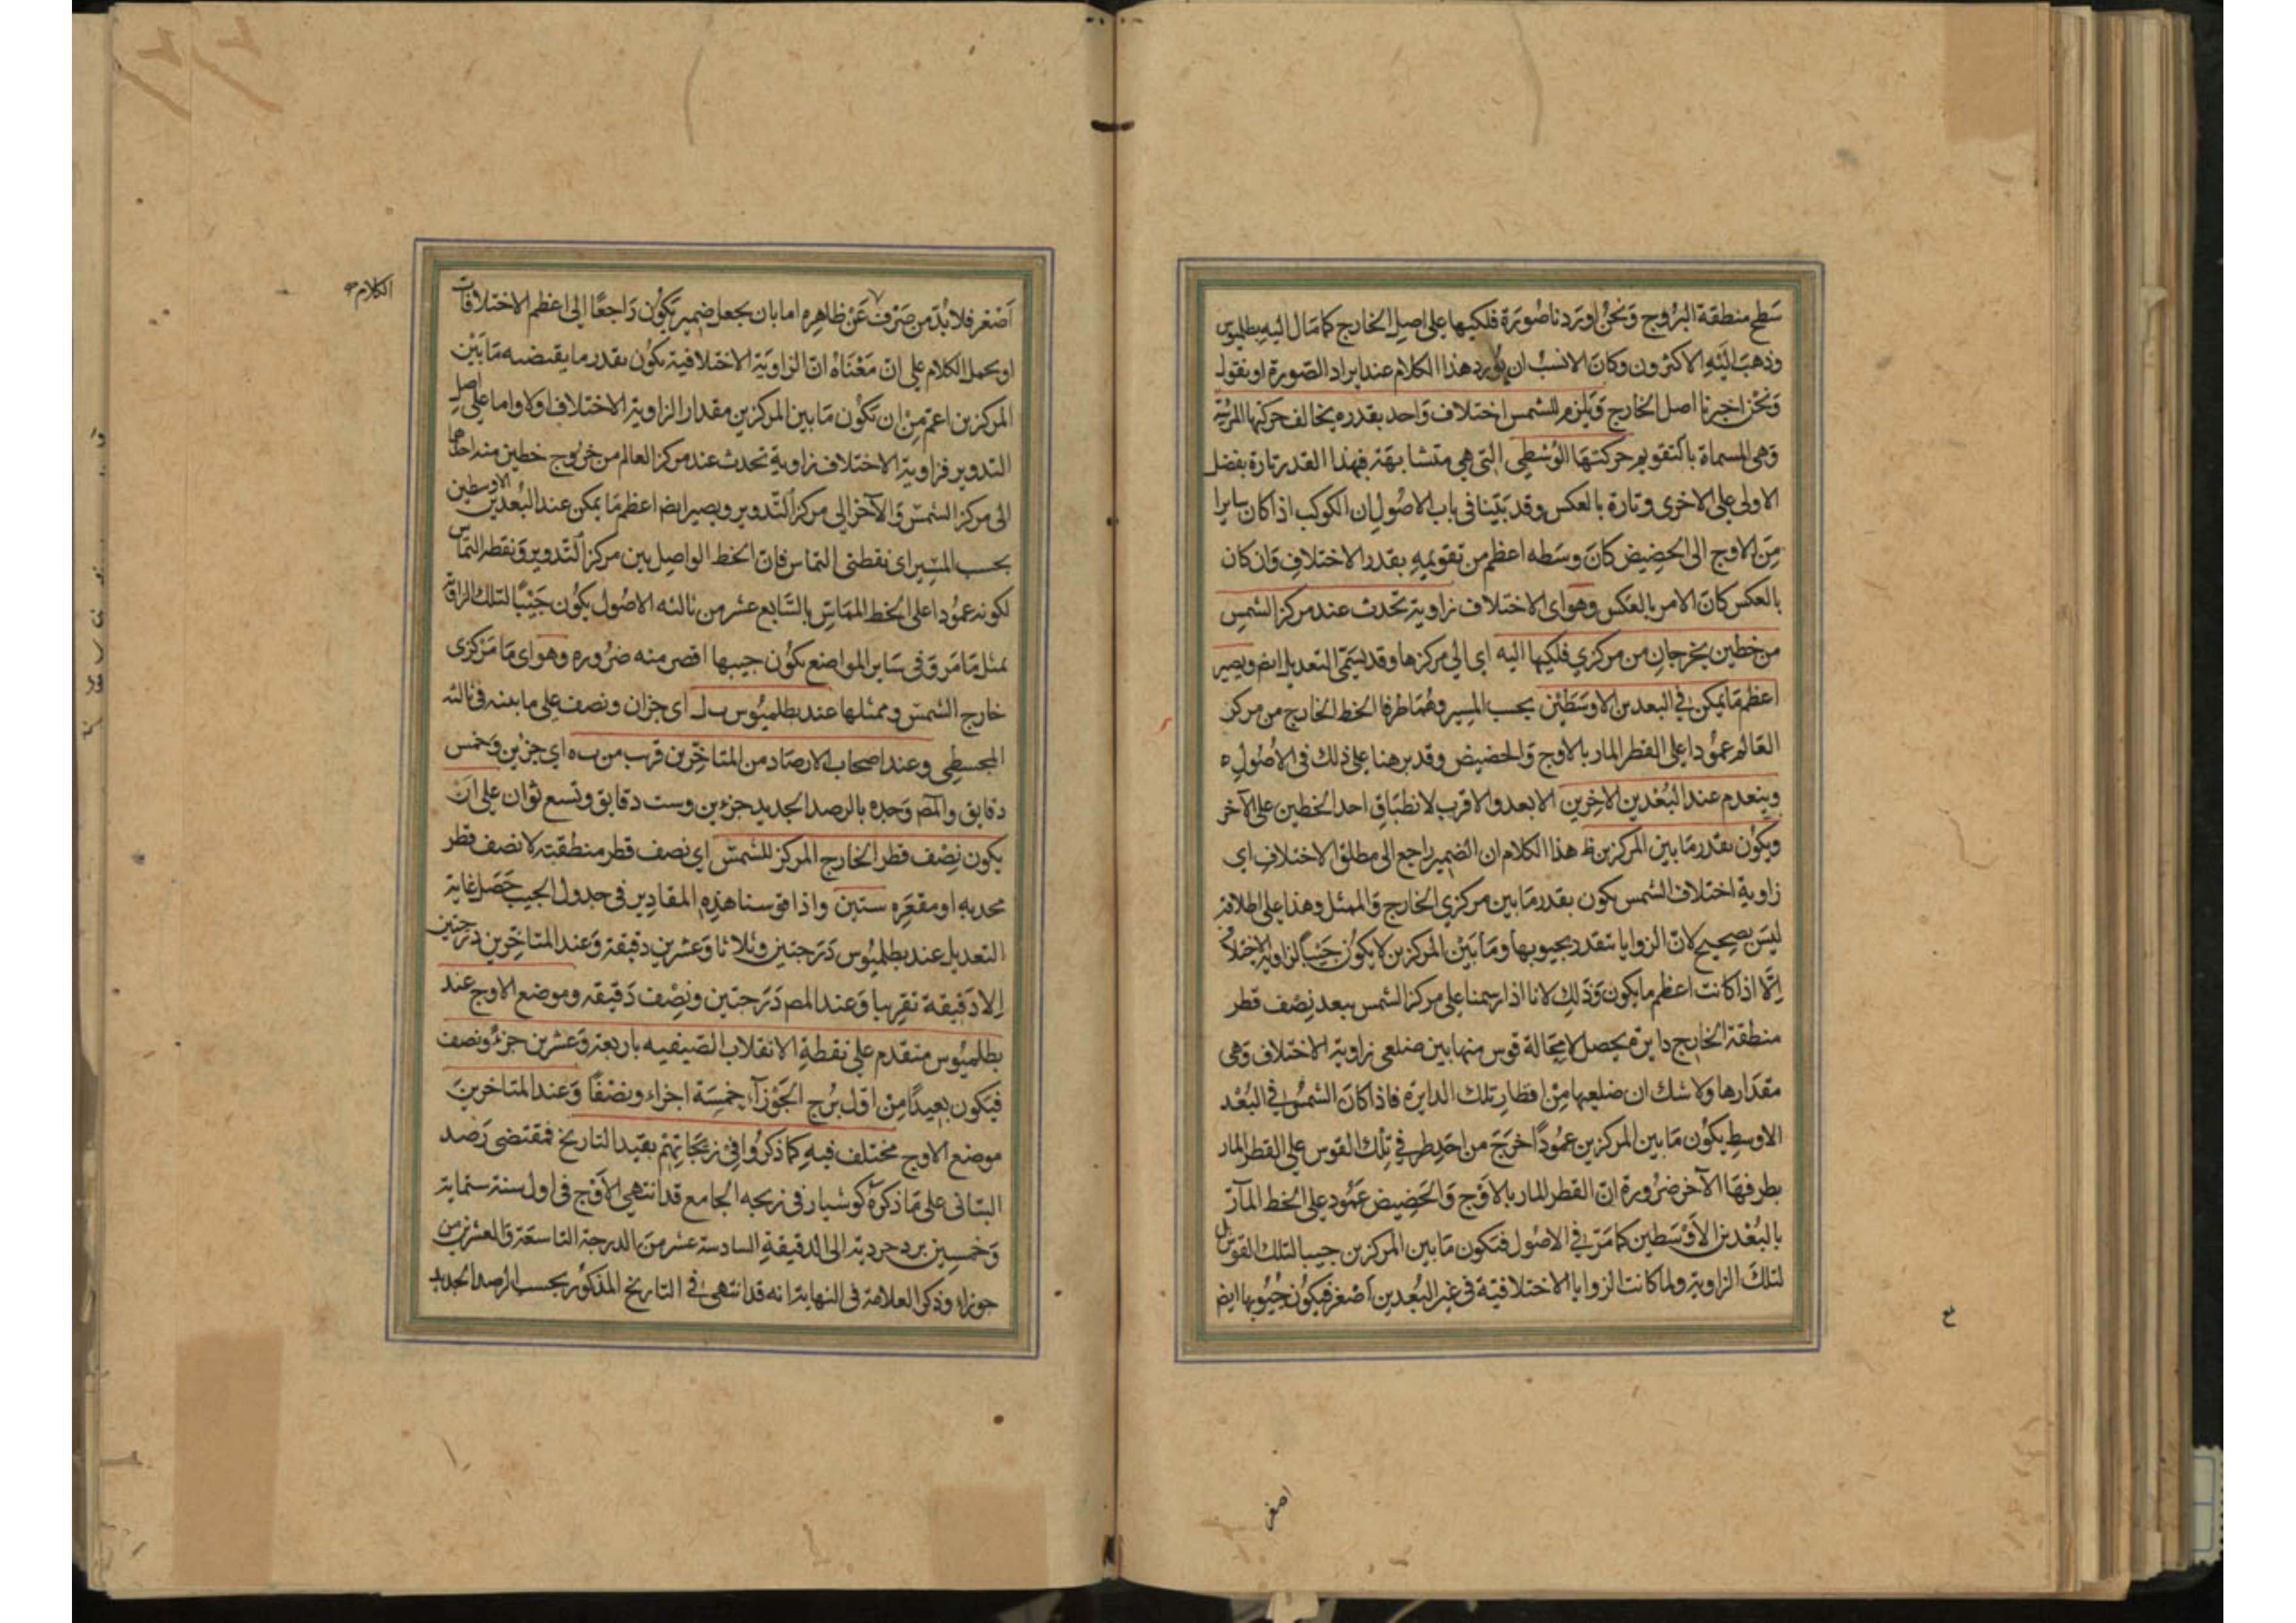 سَطح منطقة البُروج وَنحنُ اورَدنا صُورَة فلكيها على اصل الخارج كما مَال اليه بطلميوس
وذهبَ اليَه الاكثرون وكانَ الانسبُ ان يُورد هذا الكلام عند ايراد الصّورة او يقول
وَنحنُ اخترنا اصل الخارج وَيلزم للشمس اختلاف وَاحد بقدره يخالف حركتها المرئية
وَهى المسماة بالتقويم حركتهَا الوُسْطى التى هى متشابهَة فهذا القدر تارة بفضل
الاولى على الاخرى وتارة بالعكس وقد بَيّنا فى باب الاصُول ان الكوكب اذا كان سايرا
مِنَ الاوج الى الحضِيض كانَ وسَطه اعظم من تقويمهِ بقدر الاختلافِ وَان كان
بالعكس كانَ الامر بالعَكس وهو اى الاختلاف زاوية تحدث عند مركز الشمسِ
من خطين يخرجانِ من مركزي فلكيها اليه اى الى مركزها وقد يسَمّى التعديل ايض ويصير
اعظم مَا يمكن في البعدين الاوسَطَيْن بحسب المسير وهُمَا طرفا الخط الخارج من مركز
العَالم عمُودا على القطر المار بالاوج وَالحضيض وقد برهنا على ذلك فى الاصُول
وينعدم عند البُعْدين الاخِرين الابعد والاقرب لانطبَاقِ احد الخطين على الآخر
ويكوُن بقدر مَا بين المركزين ظ هذا الكلام ان الضمير راجع الى مطلق الاختلافِ اى
زاوية اختلاف الشمس يكون بقدر مَا بين مركزي الخارج وَالممثل وهذا على اطلاقه
ليسَ بصحيح لانّ الزوايا تتقدر بجيوبها ومَا بَيْن المركزين لا يكوُن جَيْبًا لزاوية الاختلا
اِلّا اذا كانت اعظم ما يكون وَذلِك لانا اذا رسمنا على مركز الشمس ببعد نِصف قطر
منطقة الخارج دايرة يحصل لامحَالة قوس منها بين ضلعى زاوية الاختلاف وَهى
مقدَارها ولا شك ان ضلعيها مِنْ اقطار تلك الدايرة فاذا كانَ الشمسُ في البُعْد
الاوسطِ يكوُن مَا بين المركزين عمُودًا خرَجَ من احد طرفي تِلك القوس على القطر المار
بطرفهَا الآخر ضرُورة انّ القطر المار بالاوْج وَالحَضِيض عَمُود على الخط المآرّ
بالبُعْدين الاَوْسَطين كما مَرّ في الاصُول فتكون مَا بين المركزين جيبا لتلك القوس بل
لتلكَ الزاوية ولما كانت الزوايا الاختلافيّة فى غير البُعدين اَصْغر فيكوُن جُيُوبها ايض
اصغر
اَصْغر فلا بُدّ من صَرْف عَنْ ظاهِره اما بان يجعل ضمير يَكوُن رَاجعًا الى اعظم الاختلافات
الكلام
او يحمل الكلام على انّ مَعْنَاهُ انّ الزاويَة الاختلافية يكوُن بقدر ما يقتضيه مَا بَيْن
المركزين اعم مِنْ ان تكوُن مَا بين المركزين مقدار الزاوية الاختلاف اولا واما على اصل
التدوير فزاوية الاختلاف زاوية تحدث عند مركز العالم من خرُوج خطين منه احدهما
الى مركز الشمسّ وَالآخر الى مركز التّدوير ويصير ايض اعظم مَا يمكن عند البُعدَين الاوسطين
بحسب المسَير اى نقطتى التماس فانّ الخط الواصل بين مركز التّدوير وَنقطة التماس
لكونه عمُودا على الخط المماسّ بالسّابع عشر من ثالثه الاصُول يكوُن جَيْبًا لتلك الزاوية
بمثل مَا مَرّ وَفى سَاير المواضع يكوُن جيبها اقصر منه ضرُوره وهو اى مَا مَرْكزى
خارج الشمسّ وممثلها عند بطلميُوس ب ل اى جزان ونصف على ما بينه فى ثالثة
المجسطِى وعند اصحاب الارصَاد من المتاخّرين قرب من ب ه اى جزئين وَخمس
دقايق والمص وَجده بالرصد الجديد جزءين وست دقايق وتسع ثوان على انّ
يكون نِصْف قطر الخارج المركز للشمسّ اي نصف قطر منطقته لا نصف قطر
محدبه او مقعَّره ستين واذا قوسنا هذِه المقادِير فى جدول الجيب حَصَل غاية
التعديل عند بطلميُوس دَرَجتين وثلاثا وَعشرين دقيقة وَعند المتاخّرين دَرجتين
الادَقيقة تقريبا وَعند المص دَرَجتين ونصِف دَقيقه وموضع الاوج عند
بطلميُوس متقدم على نقطةِ الانقلاب الصّيفيه باربعة وَعشرين جزءً ونصف
فيَكون بعيدًا مِنْ اوّل بُرج الجَوْزآء خمسَة اجزاء ونصْفًا وَعند المتاخرينَ
موضع الاوج مختلف فيهِ كما ذكرُوا فى زيجَاتِهمْ بقيد التاريخ فمقتضى رَصَد
البتانى على مَا ذكرهُ كوشيار فى زيجه الجامع قد انتهى الاَوْج فى اول سنة ستماية
وَخمسِين يزدجردية الى الدقيقةِ السادسة عشر من الدرجة التاسعَة وَالعشرين من
جوزاء وذكر العلامة فى النهاية انه قد انتهىٰ في التاريخ المذكوُر بحسب الرصد الجديد